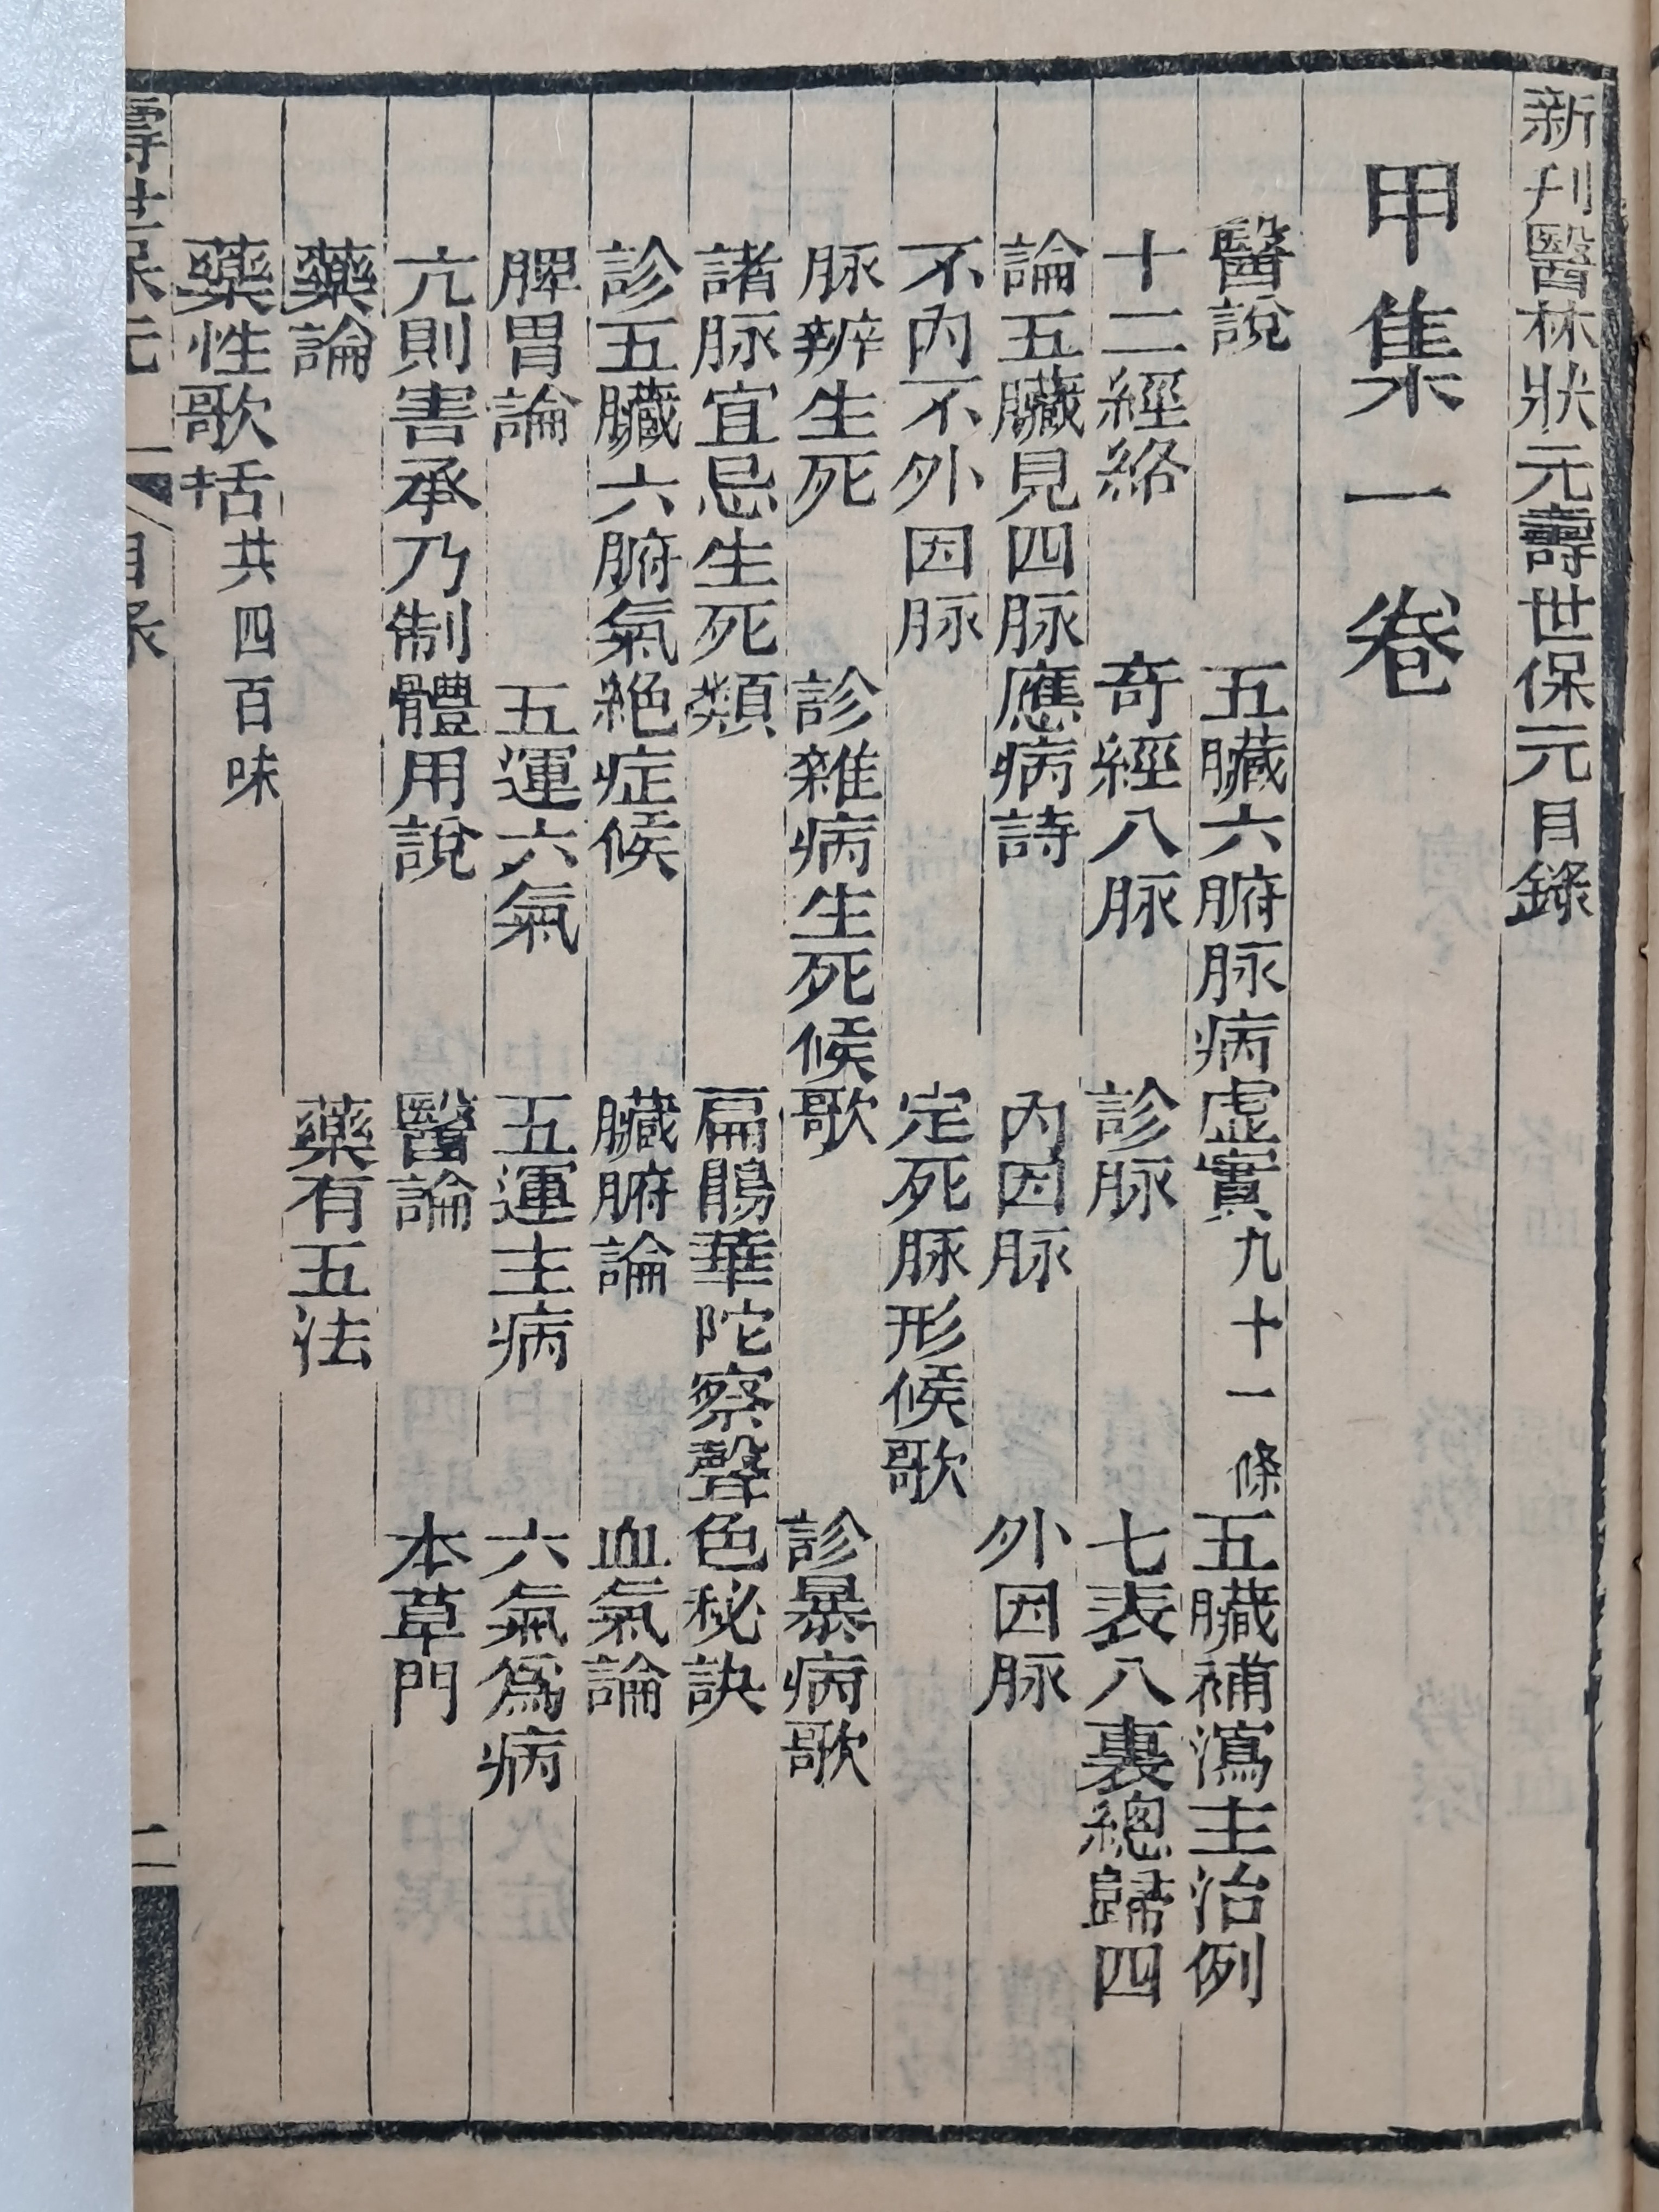 新刋醫林狀元壽世保元目錄
甲集一卷
醫說　五臟六腑脉病虛實九十一條　五臟補瀉主治例
十二經絡　奇經八脉　診脉　七表八裏總歸四
論五臟見四脉應病詩　內因脉　外因脉
不內不外因脉　定死脉形候歌
脉辨生死　診雜病生死候歌　診暴病歌
諸脉宜忌生死類　扁鵲華陀察聲色秘訣
診五臟六腑氣絕症候　臟腑論　血氣論
脾胃論　五運六氣　五運主病　六氣爲病
亢則害承乃制體用說　醫論　本草門
藥論　藥有五法
藥性歌括共四百味
壽世保元　一　目錄　二